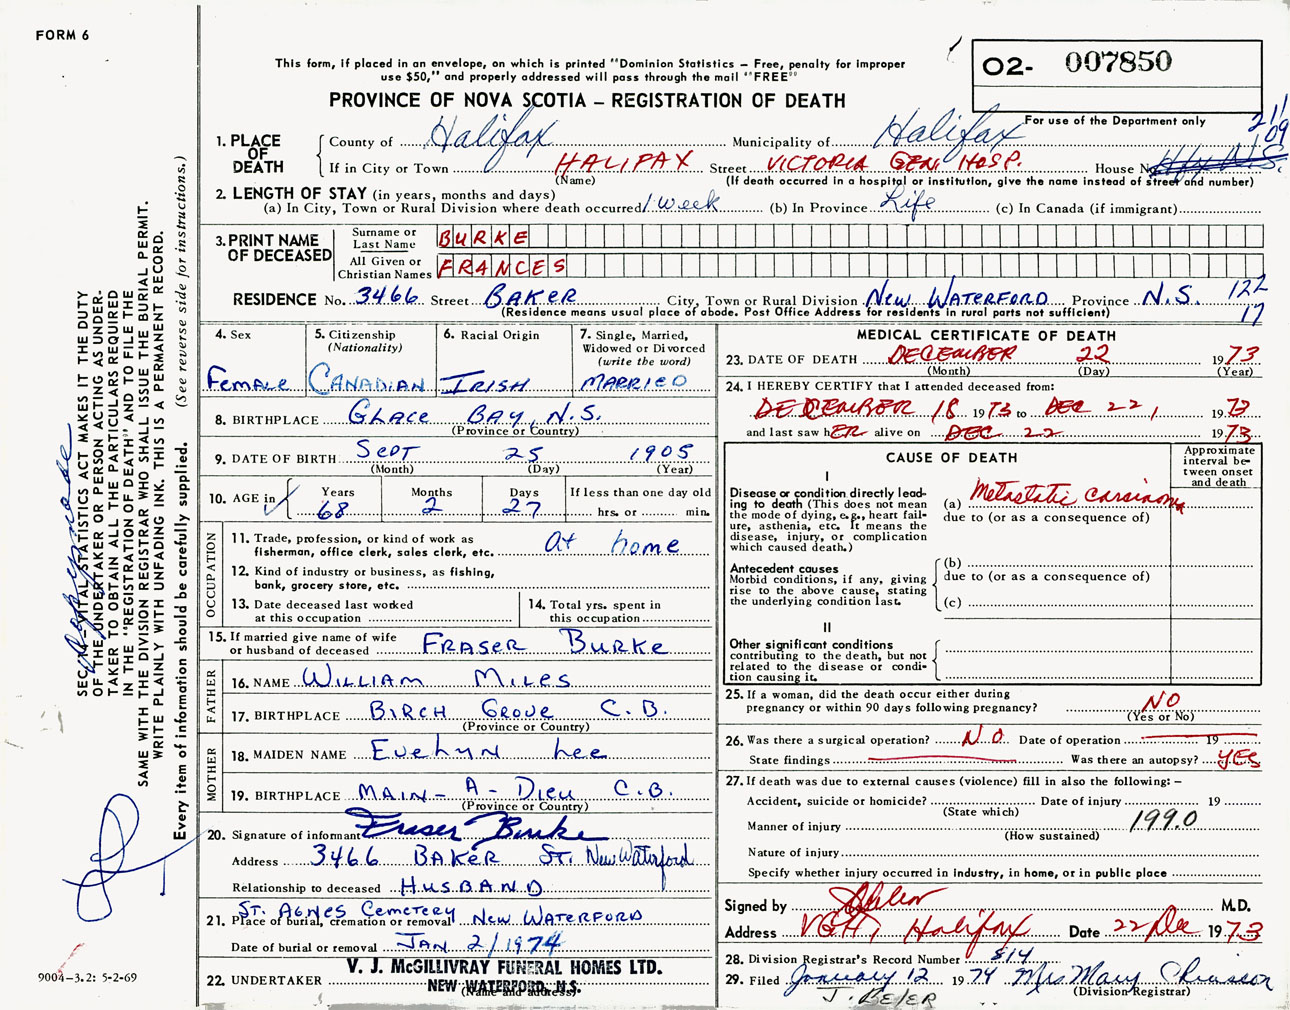 FORM 6
This form, if placed in an envelope, on which is printed "Dominion Statistics – Free, penalty for improper
use $50," and properly addressed will pass through the mail "FREE"
O2- 007850
For use of the Department only
PROVINCE OF NOVA SCOTIA – REGISTRATION OF DEATH
211
109
1. PLACE OF DEATH
County of Halifax Municipality of Halifax
If in City or Town HALIFAX Street VICTORIA GEN. HOSP. House No.
(Name) (If death occurred in a hospital or institution, give the name instead of street and number)
2. LENGTH OF STAY (in years, months and days)
(a) In City, Town or Rural Division where death occurred 1 week (b) In Province Life (c) In Canada (if immigrant)
3. PRINT NAME OF DECEASED
Surname or Last Name BURKE
All Given or Christian Names FRANCES
RESIDENCE No. 3466 Street BAKER City, Town or Rural Division NEW WATERFORD Province N.S. 122
(Residence means usual place of abode. Post Office Address for residents in rural parts not sufficient) 17
4. Sex
Female
5. Citizenship
(Nationality)
CANADIAN
6. Racial Origin
IRISH
7. Single, Married,
Widowed or Divorced
(write the word)
MARRIED
8. BIRTHPLACE GLACE BAY, N.S.
(Province or Country)
9. DATE OF BIRTH SEPT 25 1905
(Month) (Day) (Year)
10. AGE in Years Months Days If less than one day old
68 2 27 hrs. or min.
OCCUPATION
11. Trade, profession, or kind of work as
fisherman, office clerk, sales clerk, etc. at home
12. Kind of industry or business, as fishing,
bank, grocery store, etc.
13. Date deceased last worked
at this occupation
14. Total yrs. spent in
this occupation
15. If married give name of wife
or husband of deceased FRASER BURKE
FATHER
16. NAME WILLIAM MILES
17. BIRTHPLACE BIRCH GROVE C.B.
(Province or Country)
MOTHER
18. MAIDEN NAME EVELYN LEE
19. BIRTHPLACE MAIN-A-DIEU C.B.
(Province or Country)
20. Signature of informant Fraser Burke
Address 3466 BAKER ST. New Waterford
Relationship to deceased HUSBAND
21. Place of burial, cremation or removal ST. AGNES CEMETERY NEW WATERFORD
Date of burial or removal JAN 2/1974
22. UNDERTAKER V. J. McGILLIVRAY FUNERAL HOMES LTD.
NEW WATERFORD, N.S.
(Name and address)
MEDICAL CERTIFICATE OF DEATH
23. DATE OF DEATH DECEMBER 22 1973
(Month) (Day) (Year)
24. I HEREBY CERTIFY that I attended deceased from:
DECEMBER 18 1973 to DEC 22, 1973
and last saw hER alive on DEC 22 1973
CAUSE OF DEATH
Approximate
interval be-
tween onset
and death
I
Disease or condition directly lead-
ing to death (This does not mean
the mode of dying, e.g., heart fail-
ure, asthenia, etc. It means the
disease, injury, or complication
which caused death.)
(a) Metastatic Carcinoma
due to (or as a consequence of)
Antecedent causes
Morbid conditions, if any, giving
rise to the above cause, stating
the underlying condition last.
(b)
due to (or as a consequence of)
(c)
II
Other significant conditions
contributing to the death, but not
related to the disease or condi-
tion causing it.
25. If a woman, did the death occur either during
pregnancy or within 90 days following pregnancy? NO
(Yes or No)
26. Was there a surgical operation? NO Date of operation 19
State findings Was there an autopsy? YES
27. If death was due to external causes (violence) fill in also the following: –
Accident, suicide or homicide? Date of injury 19
(State which)
Manner of injury 199.0
(How sustained)
Nature of injury
Specify whether injury occurred in industry, in home, or in public place
Signed by M.D.
Address VGH, Halifax Date 22 Dec 1973
28. Division Registrar's Record Number 814
29. Filed January 12 1974 Mrs Mary Chiasson
(Division Registrar)
SEC. – VITAL STATISTICS ACT MAKES IT THE DUTY
OF THE UNDERTAKER OR PERSON ACTING AS UNDER-
TAKER TO OBTAIN ALL THE PARTICULARS REQUIRED
IN THE "REGISTRATION OF DEATH" AND TO FILE THE
SAME WITH THE DIVISION REGISTRAR WHO SHALL ISSUE THE BURIAL PERMIT.
WRITE PLAINLY WITH UNFADING INK. THIS IS A PERMANENT RECORD.
Every item of information should be carefully supplied. (See reverse side for instructions.)
9004-3.2: 5-2-69